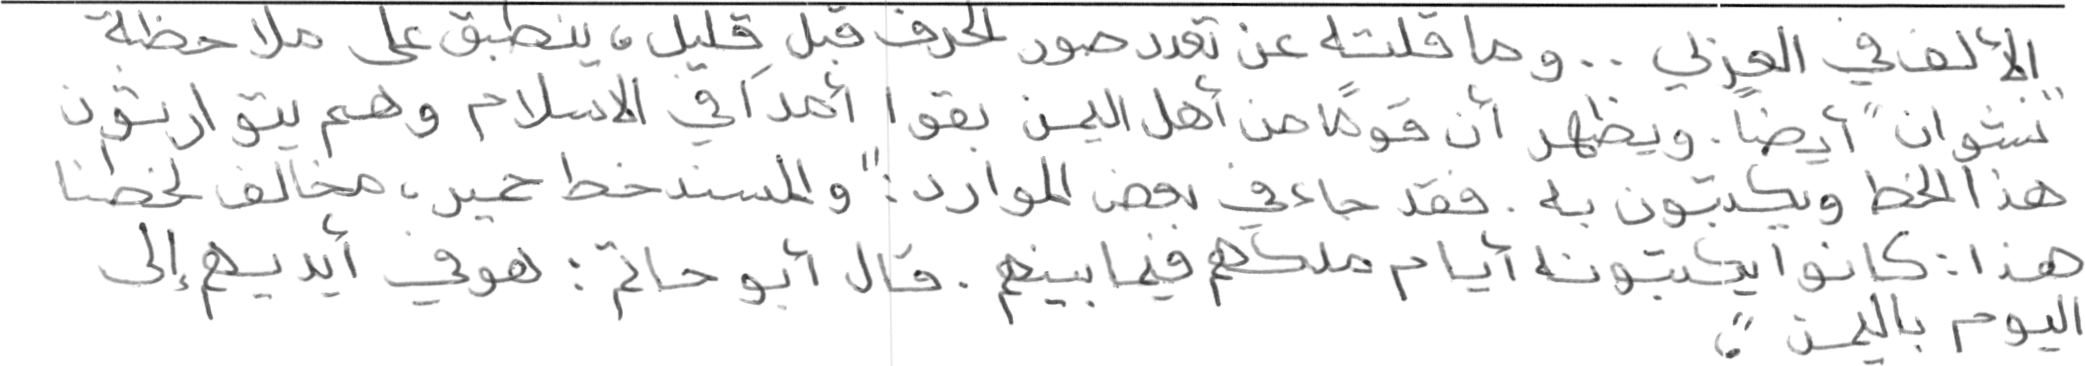 الألف في العربي .. وما قلته عن تعدد صور الحرف قبل قليل، ينطبق على ملاحظة
"نشوان" أيضاً. ويظهر أن قومًا من أهل اليمن بقوا أمداً في الاسلام وهم يتوارثون
هذا الخط ويكتبون به. فقد جاء في بعض الموارد: "والمسند خط حمير، مخالف لخطنا
هذا: كانوا يكتبونه أيام ملكهم فيما بينهم. قال أبو حاتم: هو في أيديهم إلى
اليوم باليمن".